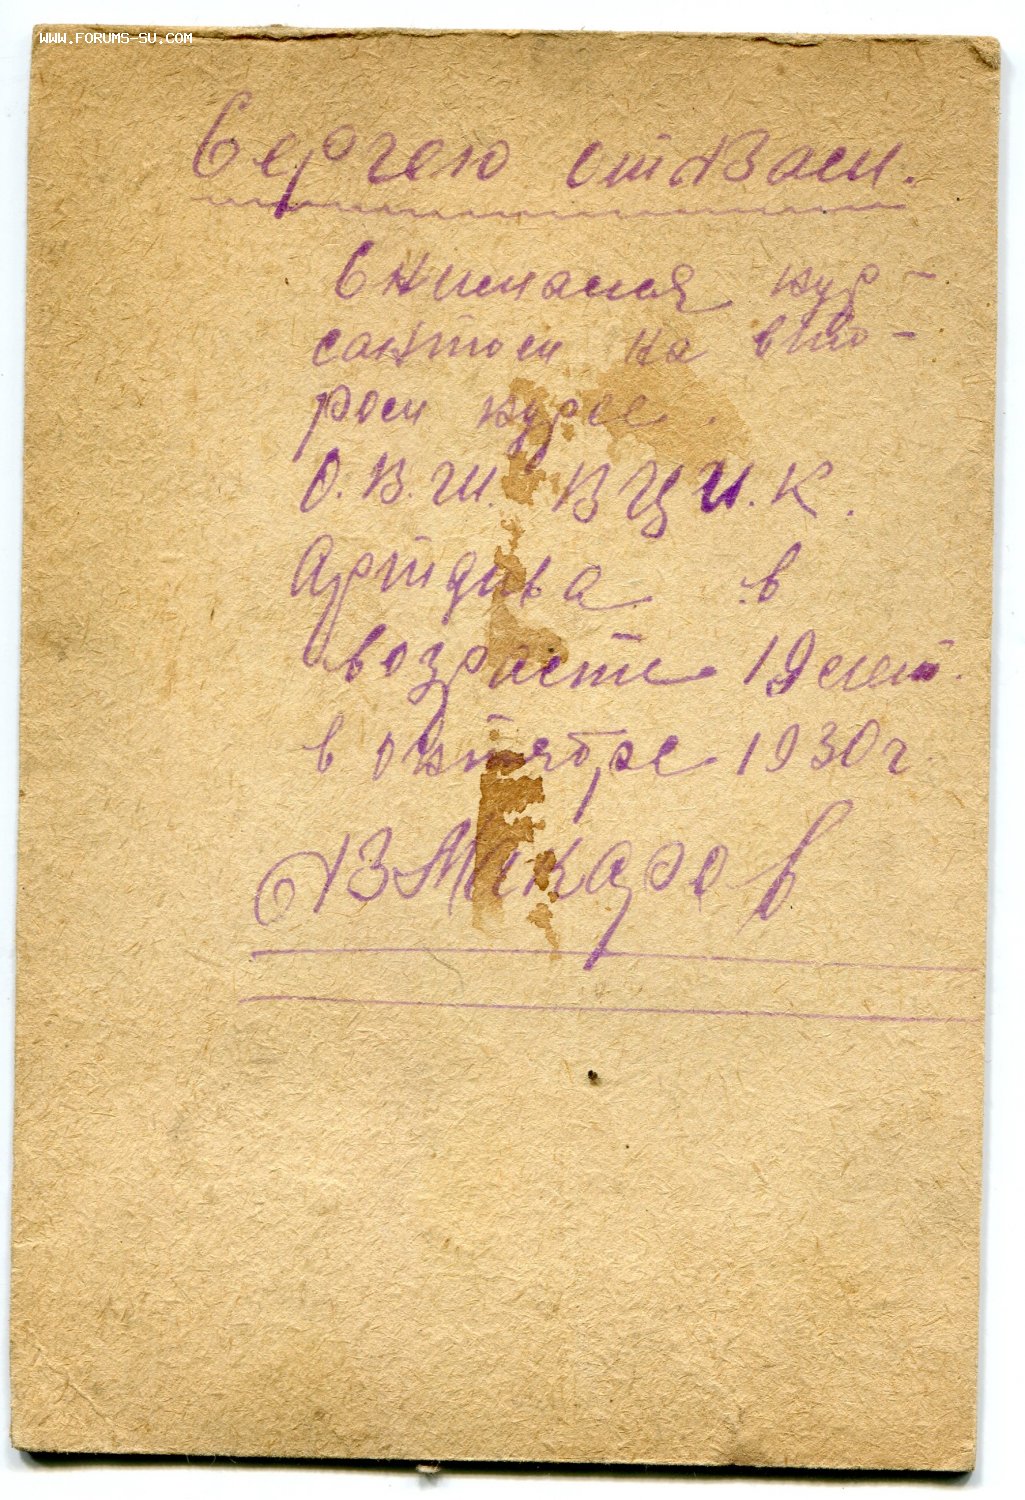 WWW.FORUMS-SU.COM
Сергею от А Васи.
Снимался кур-
сантом на вто-
ром курсе.
О.В.Ш. ВЦИК.
Артдива в
возрасте 19 лет.
в октябре 1930 г.
АВМакаров